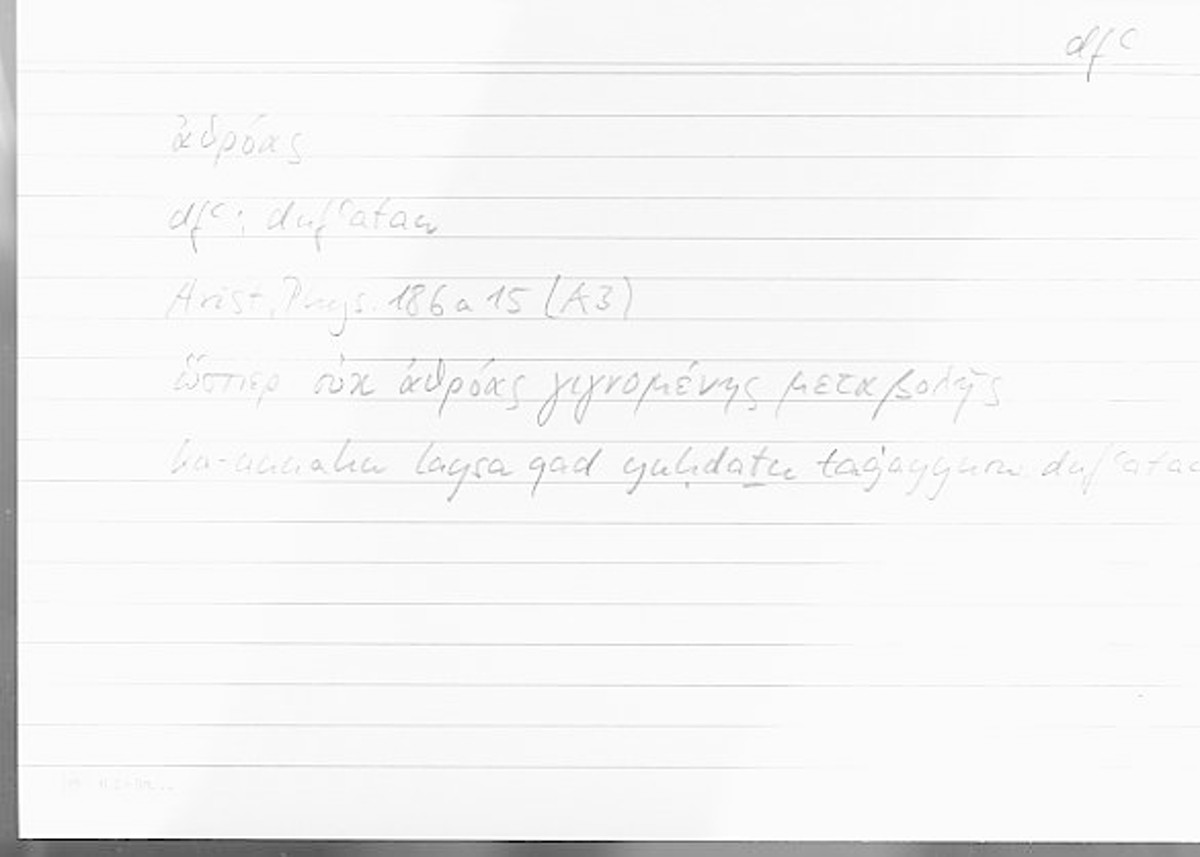 dfʿ
ἀθρόας
dfʿ: dufʿatan
Arist. Phys. 186a15 (A3)
ὥσπερ οὐκ ἀθρόας γιγνομένης μεταβολῆς
ka-annahu laysa qad yuḥdaṯu taġayyurun dufʿatan